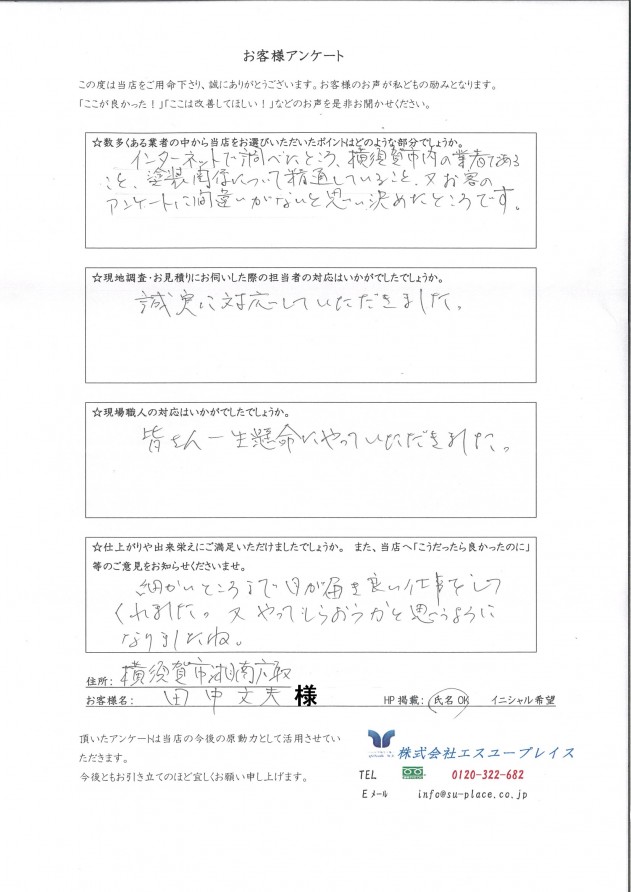 お客様アンケート
この度は当店をご用命下さり、誠にありがとうございます。お客様のお声が私どもの励みとなります。
「ここが良かった！」「ここは改善してほしい！」などのお声を是非お聞かせください。
☆数多くある業者の中から当店をお選びいただいたポイントはどのような部分でしょうか。
インターネットで調べたところ、横須賀市内の業者である
こと、塗装関係について精通していること、又お客の
アンケートに間違いがないと思い決めたところです。
☆現地調査・お見積りにお伺いした際の担当者の対応はいかがでしたでしょうか。
誠実に対応していただきました。
☆現場職人の対応はいかがでしたでしょうか。
皆さん一生懸命にやっていただきました。
☆仕上がりや出来栄えにご満足いただけましたでしょうか。 また、当店へ「こうだったら良かったのに」
等のご意見をお知らせくださいませ。
細かいところまで目が届き良い仕事をして
くれました。又やってもらおうかと思うように
なりましたね。
住所：横須賀市湘南鷹取
お客様名： 田中文夫 様 HP掲載： 氏名OK イニシャル希望
頂いたアンケートは当店の今後の原動力として活用させてい
ただきます。
今後ともお引き立てのほど宜しくお願い申し上げます。
株式会社エスユープレイス
TEL 0120-322-682
Eメール info@su-place.co.jp